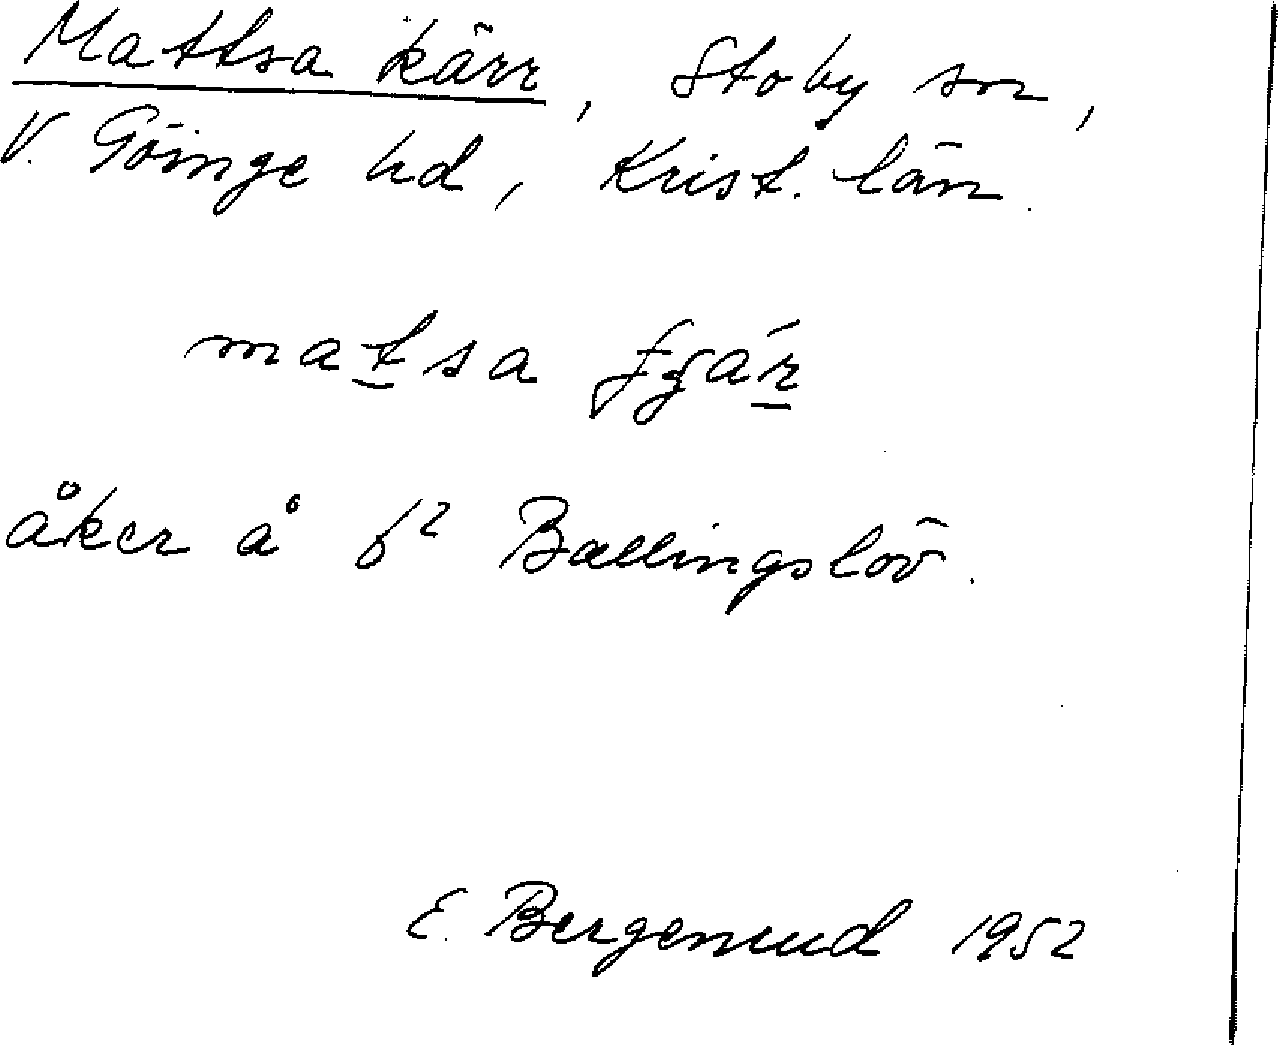 Mattsa kärr, Stoby sn,
V. Göinge hd, Krist. län.
matsa
åker å 6² Ballingslöv.
E. Bergenrud 1952